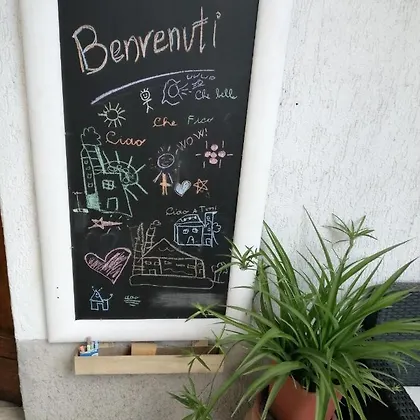 Benvenuti
Che bello
Che Fico
WOW!
Ciao
Ciao a Tutti
Ciao